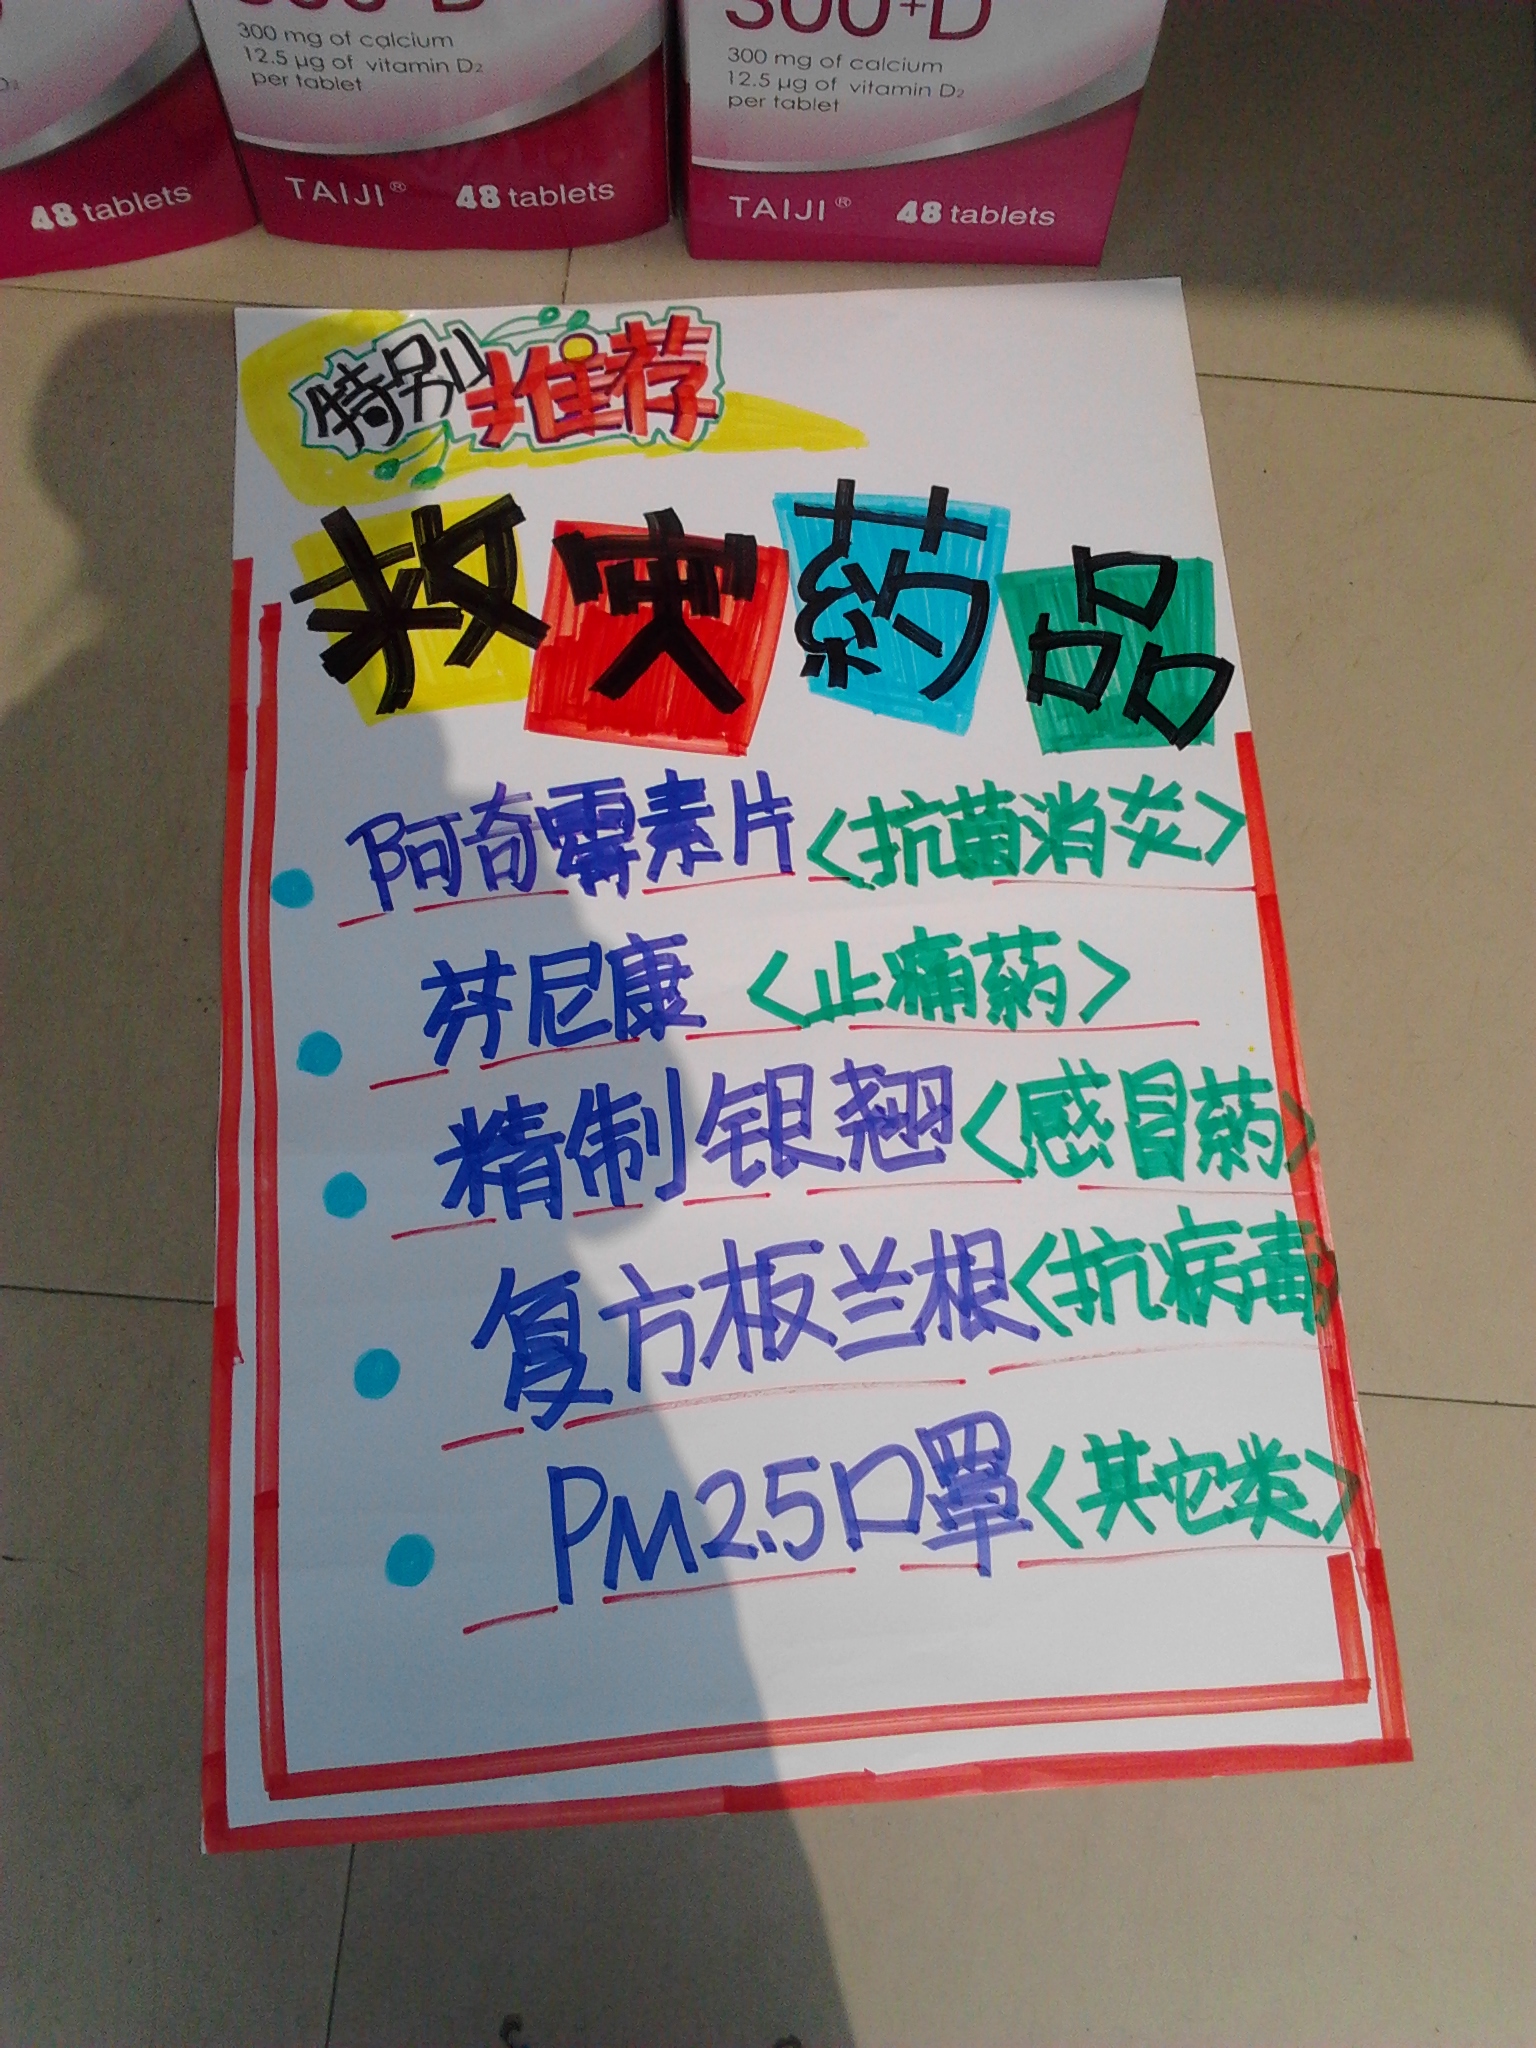 300+D
300 mg of calcium
12.5 µg of vitamin D2
per tablet
TAIJI®
48 tablets
300+D
300 mg of calcium
12.5 µg of vitamin D2
per tablet
TAIJI®
48 tablets
48 tablets
特别推荐
救灾药品
阿奇霉素片<抗菌消炎>
芬尼康 <止痛药>
精制银翘<感冒药>
复方板兰根<抗病毒>
PM2.5口罩<其它类>